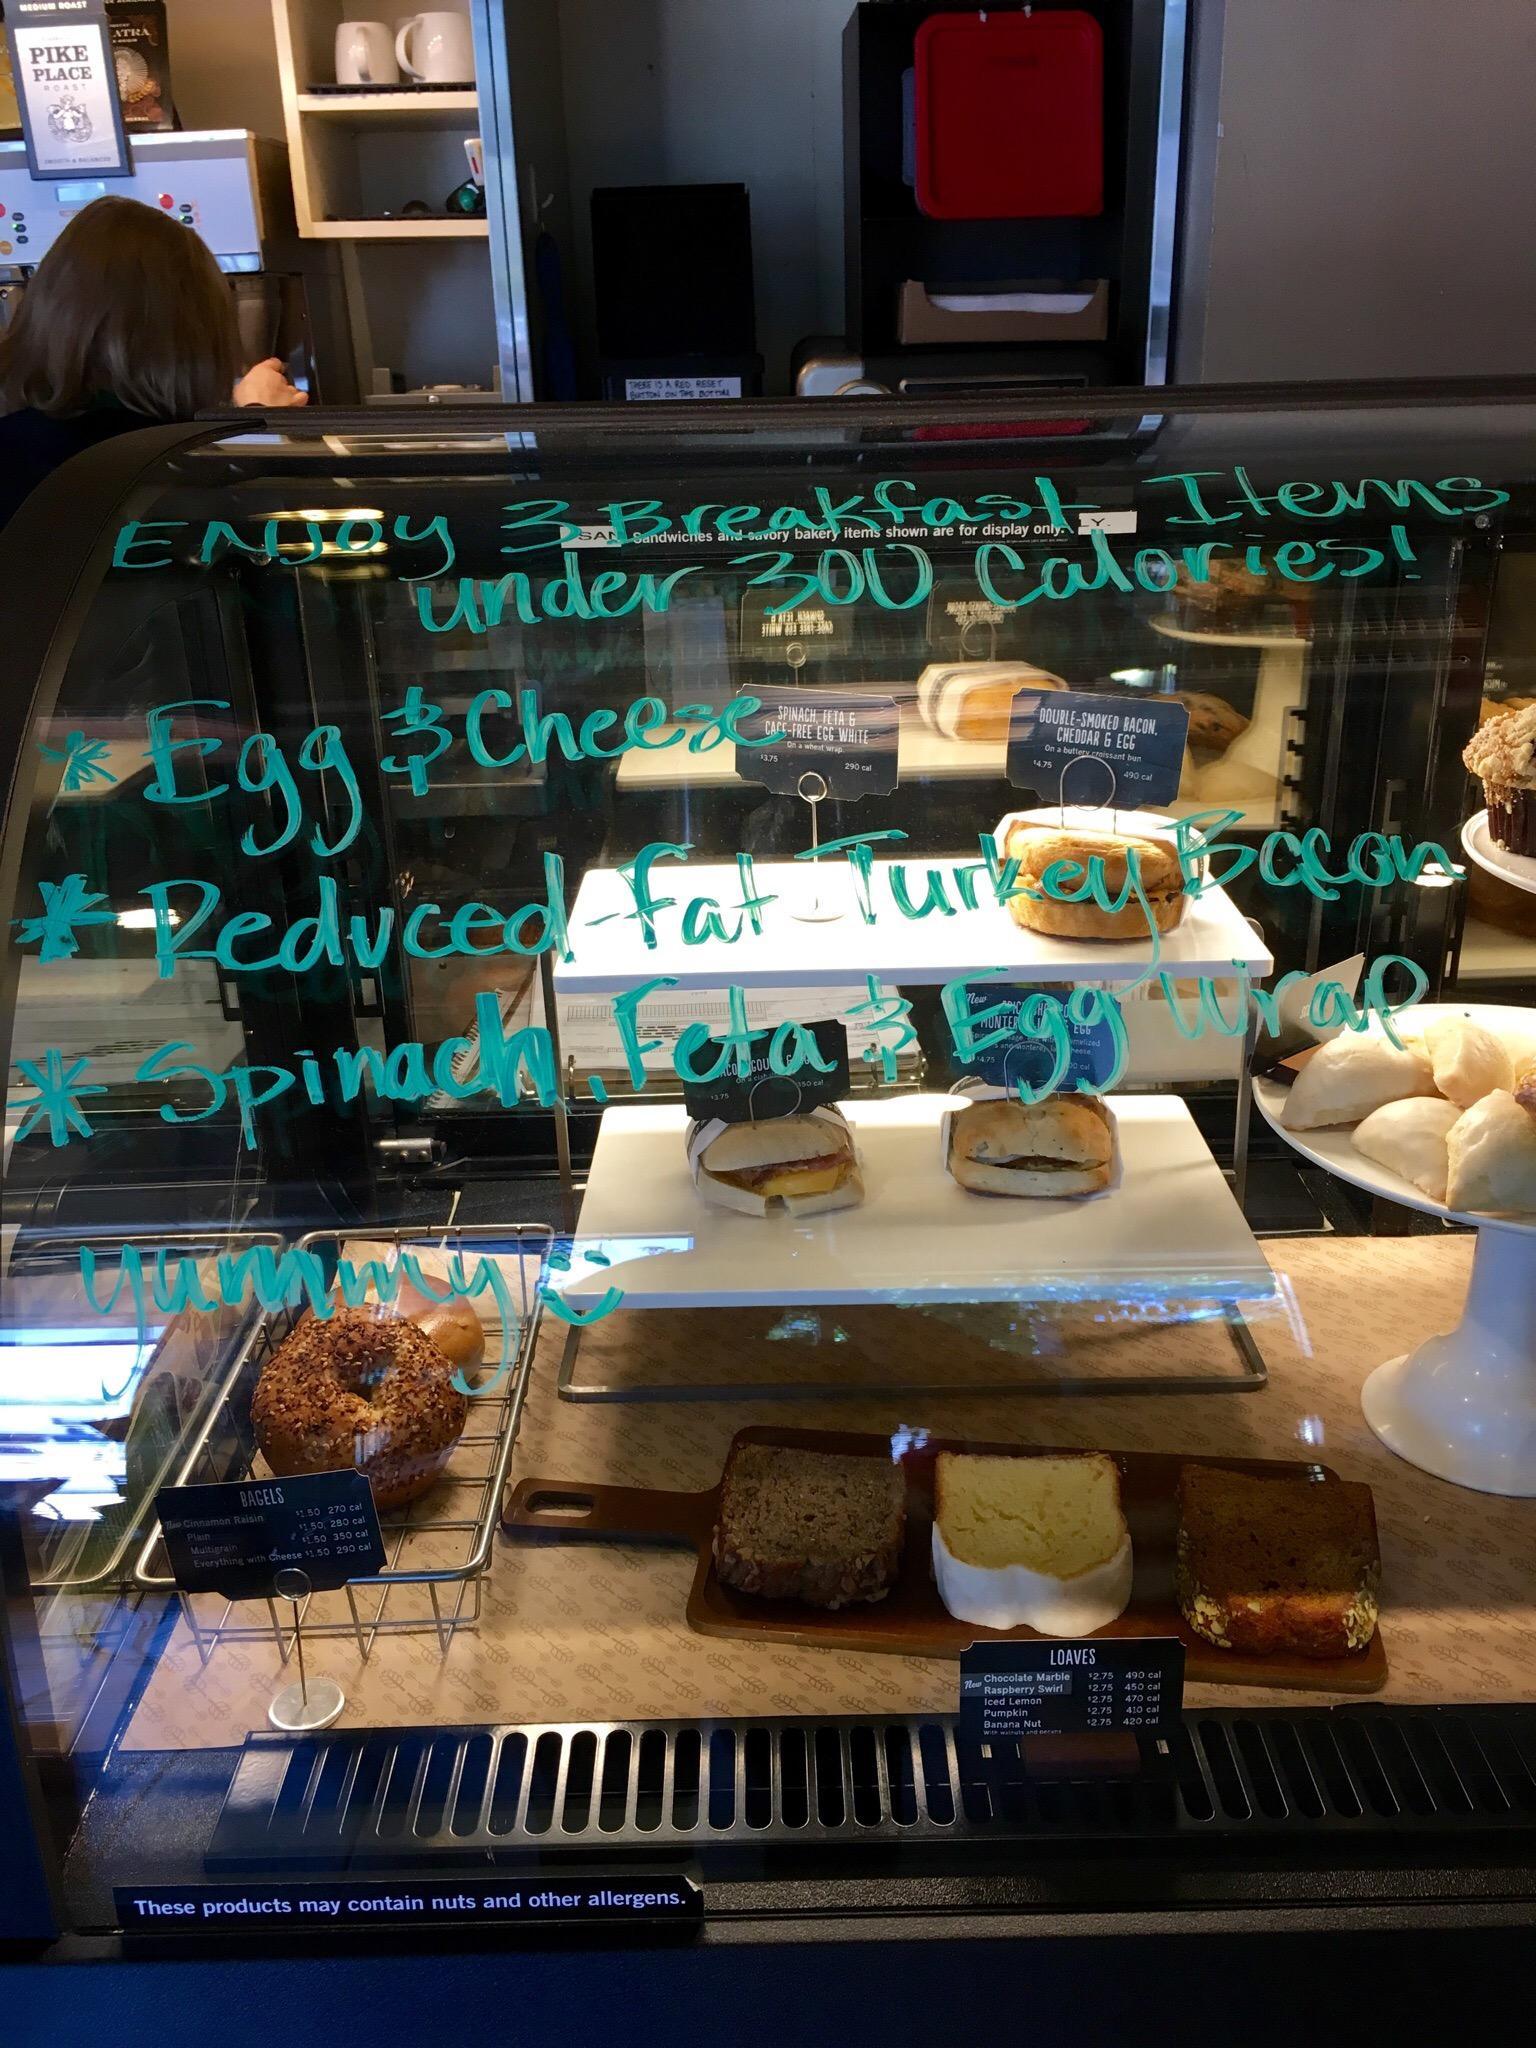 MEDIUM ROAST
PIKE
PLACE
ROAST
SMOOTH & BALANCED
THERE IS A RED RESET
BUTTON ON THE BOTTOM
ENJOY 3 Breakfast Items
Sandwiches and savory bakery items shown are for display only.
under 300 Calories!
* Egg & Cheese
SPINACH, FETA &
CAGE-FREE EGG WHITE
On a wheat wrap.
$3.75 290 cal
DOUBLE-SMOKED BACON,
CHEDDAR & EGG
On a buttery croissant bun
$4.75 490 cal
* Reduced-fat Turkey Bacon
* Spinach, Feta & Egg Wrap
New
$3.75 350 cal
$4.75
Yummy :)
BAGELS
New Cinnamon Raisin $1.50 270 cal
Plain $1.50 280 cal
Multigrain $1.50 350 cal
Everything with Cheese $1.50 290 cal
LOAVES
New Chocolate Marble $2.75 490 cal
Raspberry Swirl $2.75 450 cal
Iced Lemon $2.75 470 cal
Pumpkin $2.75 410 cal
Banana Nut $2.75 420 cal
With walnuts and pecans
These products may contain nuts and other allergens.